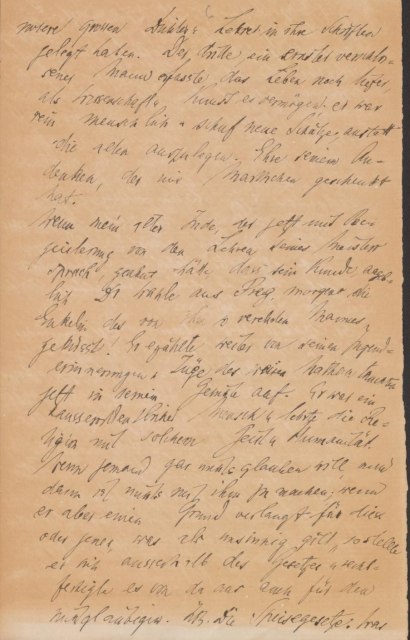 unsere grossen Dichter u. Lehrer in ihre Schriften
gelegt haben. Der dritte ein ernster verschlos-
sener Mann erfasste das Leben noch tiefer
als wissenschaft u. Kunst es vermögen, er war
rein menschlich u. schuf neue Schätze, anstatt
die alten auszulegen. Ehre seinem An-
denken, der mir Märchen geschenkt
hat.
Wenn mein alter Jude, der jetzt mit Be-
geisterung von den Lehren seines Meisters
sprach, geahnt hätte dass sein Kunde
Dr. aus Prag, morgen die
Enkelin des von ihm so verehrten Mannes
geküsst! Er erzählte weiter von seinen Jugend-
erinnerungen u. Züge des Nathan tauchten
jetzt in seinem Gemüte auf. Er war ein
ausserordentlicher Mensch u. lehrte die Re-
ligion mit solchem Geist u. Humanität.
Wenn jemand gar nichts glauben will
dann ist nichts mit ihm zu machen; wenn
er aber einen Grund verlangt für dies
oder jenes, was als unsinnig gilt, so stellte
er sich ausserhalb des Gesetzes u. recht-
fertigte es von da aus auch für den
ungläubigen. z.B. Die Speisegesetze: was